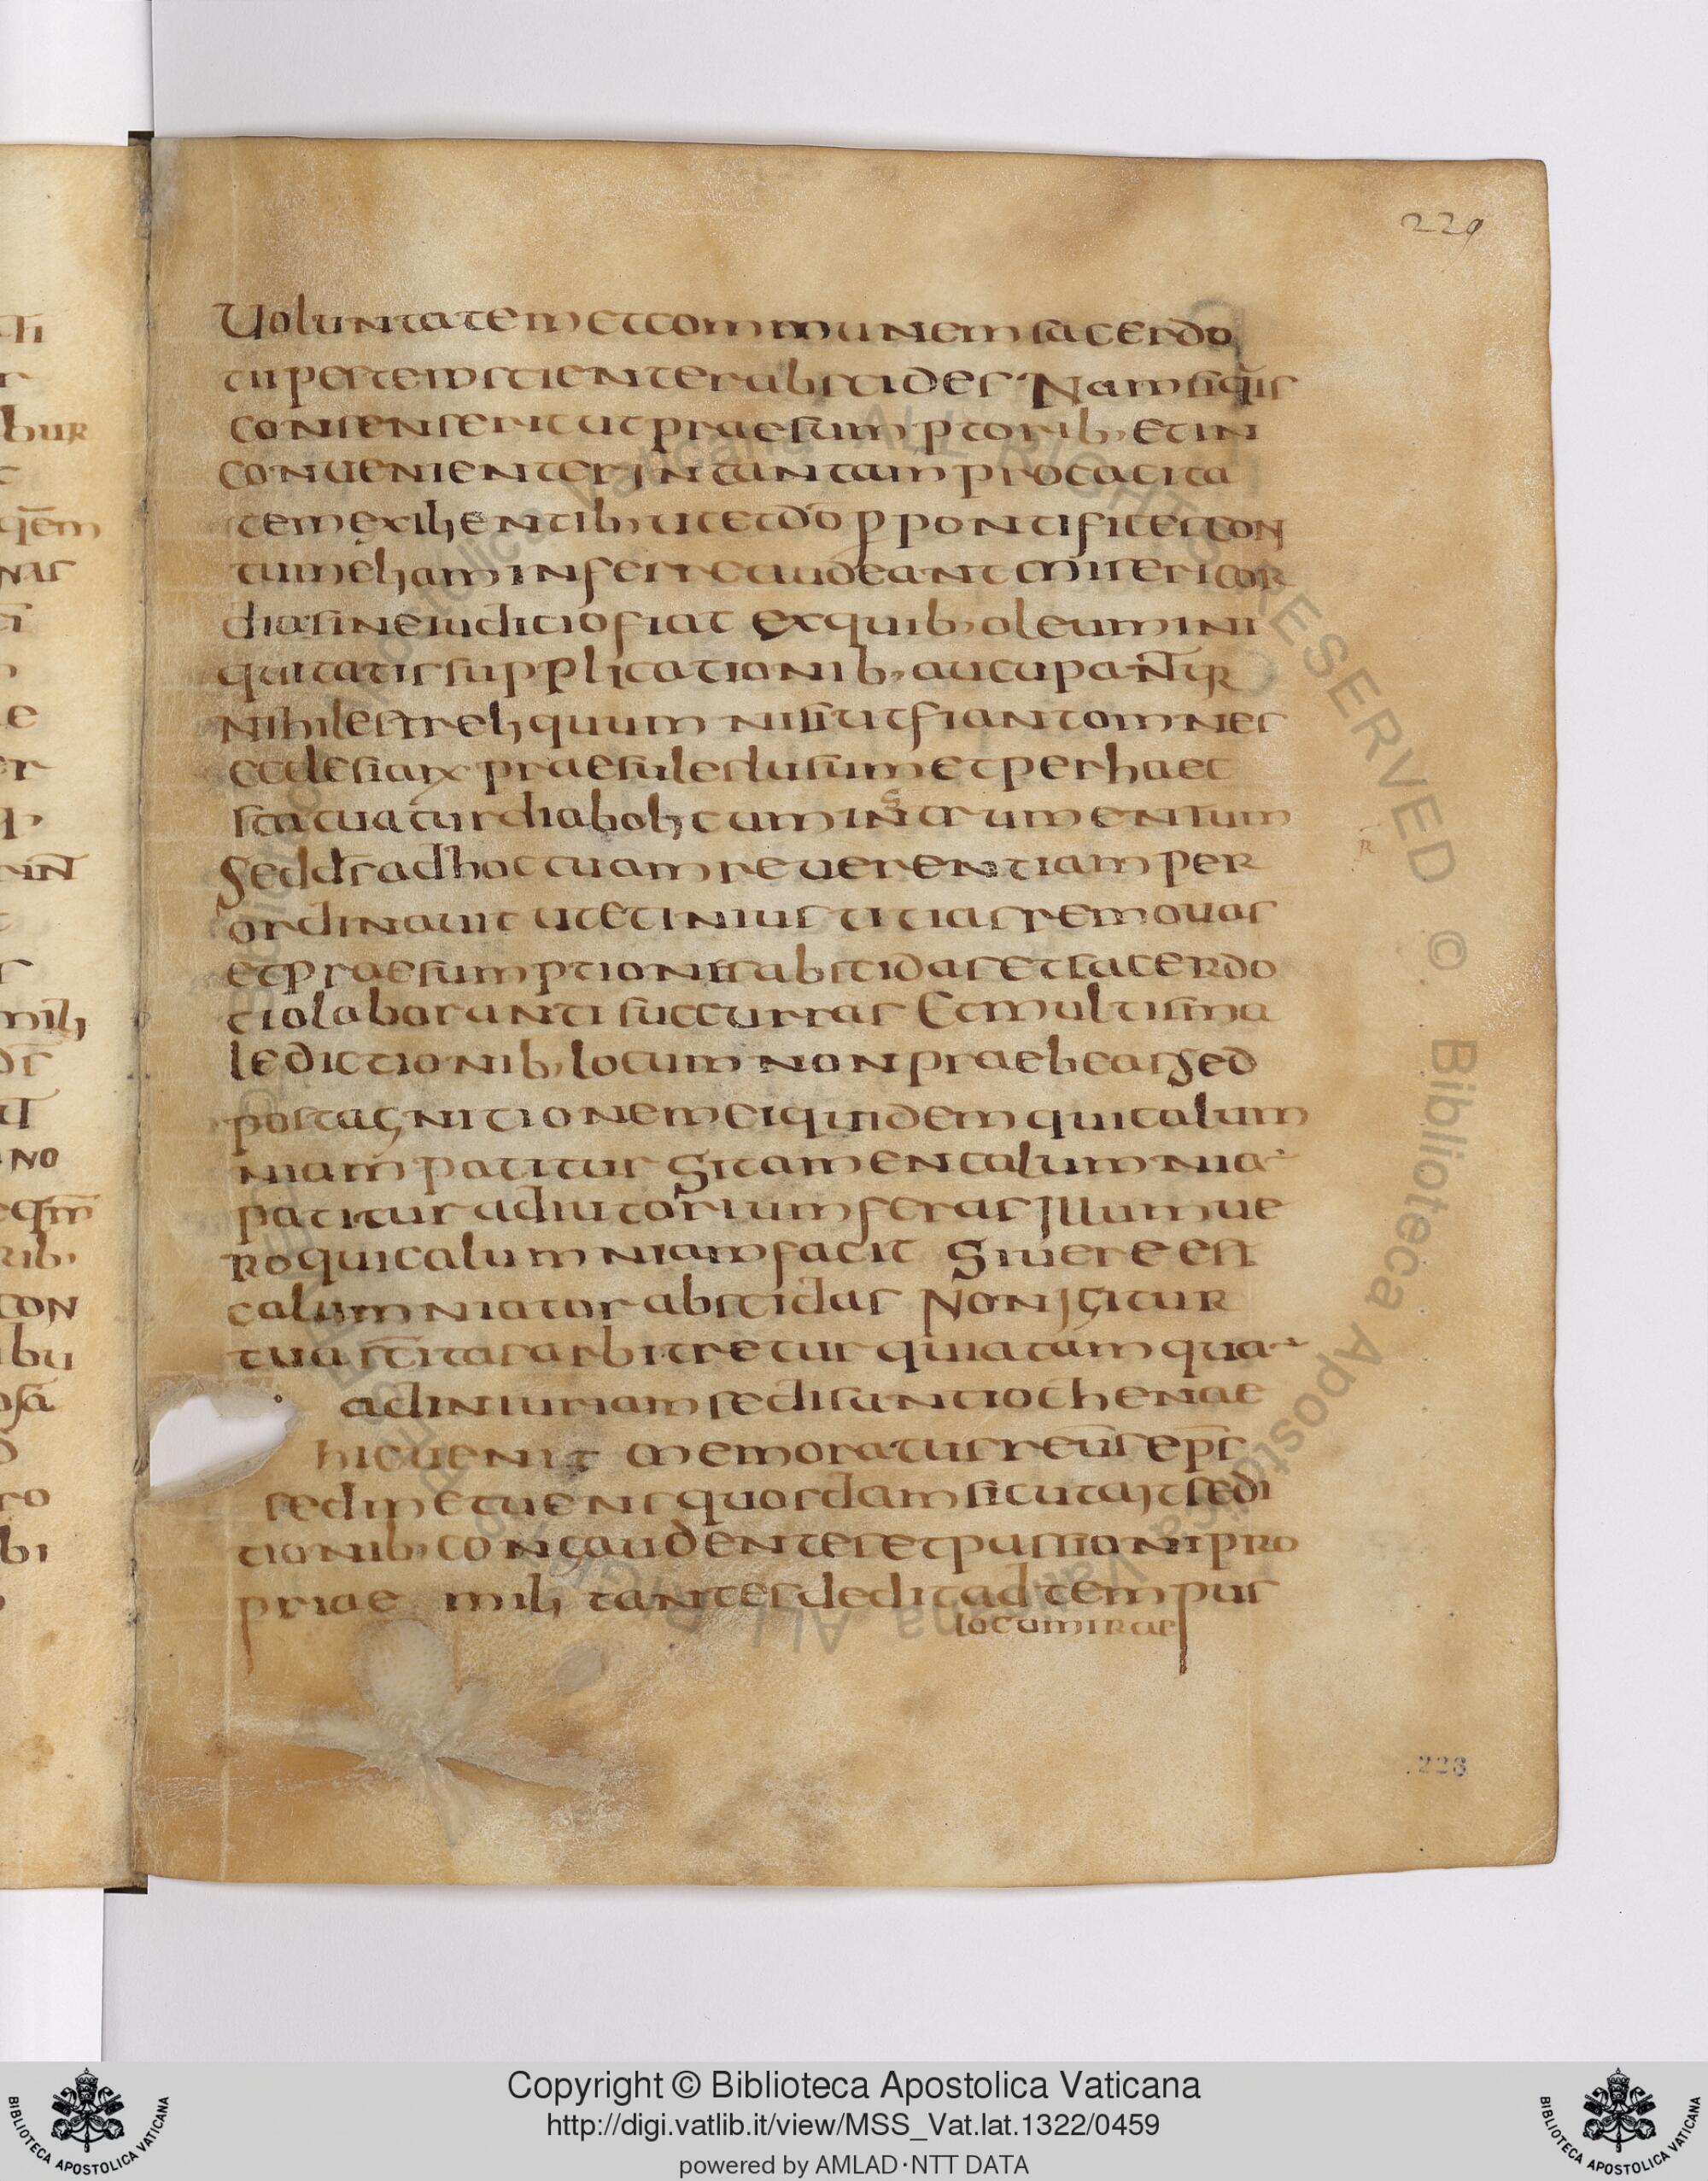 229
Uoluntatem et communem sacerdo
tii pestem scienter abscides · Nam si q̄uis
consenserit ut praesumptorib, et in
convenienter in tantam procacita
tem exilientib, ut et dō p pontifices con
tumeliam inferre audeant misericor
dia sine iudicio fiat ex quib, oleum ini
quitatis supplicationib, aucupant̄ur
Nihil est reliquum nisi ut fiant omnes
ecclesiarx praesules lusum et per haec
statuatur diabolicum instrumentum
Sed d̄s ad hoc tuam reverentiam per
ordinavit ut et iniustitias removas
et praesumptionis abscidas et sacerdo
tio laboranti succurras Et multis ma
ledictionib, locum non praebeas Sed
post agnitionem ei quidem qui calum
niam patitur Si tamen calumnia
patitur adiutorium feras Illum ve
ro qui calumniam facit Si vere est
calumniator abscidas Non igitur
tua sc̄itas arbitretur quia tamqua
ad iniuriam sedis antiochenae
hic venit memoratus reu̅s ep̅s
sed metuens quosdam sicut ait sedi
tionib, congaudentes et passioni pro
priae militantes dedit ad tempus
locum irae
228
Copyright © Biblioteca Apostolica Vaticana
http://digi.vatlib.it/view/MSS_Vat.lat.1322/0459
powered by AMLAD·NTT DATA
BIBLIOTECA APOSTOLICA VATICANA
BIBLIOTECA APOSTOLICA VATICANA